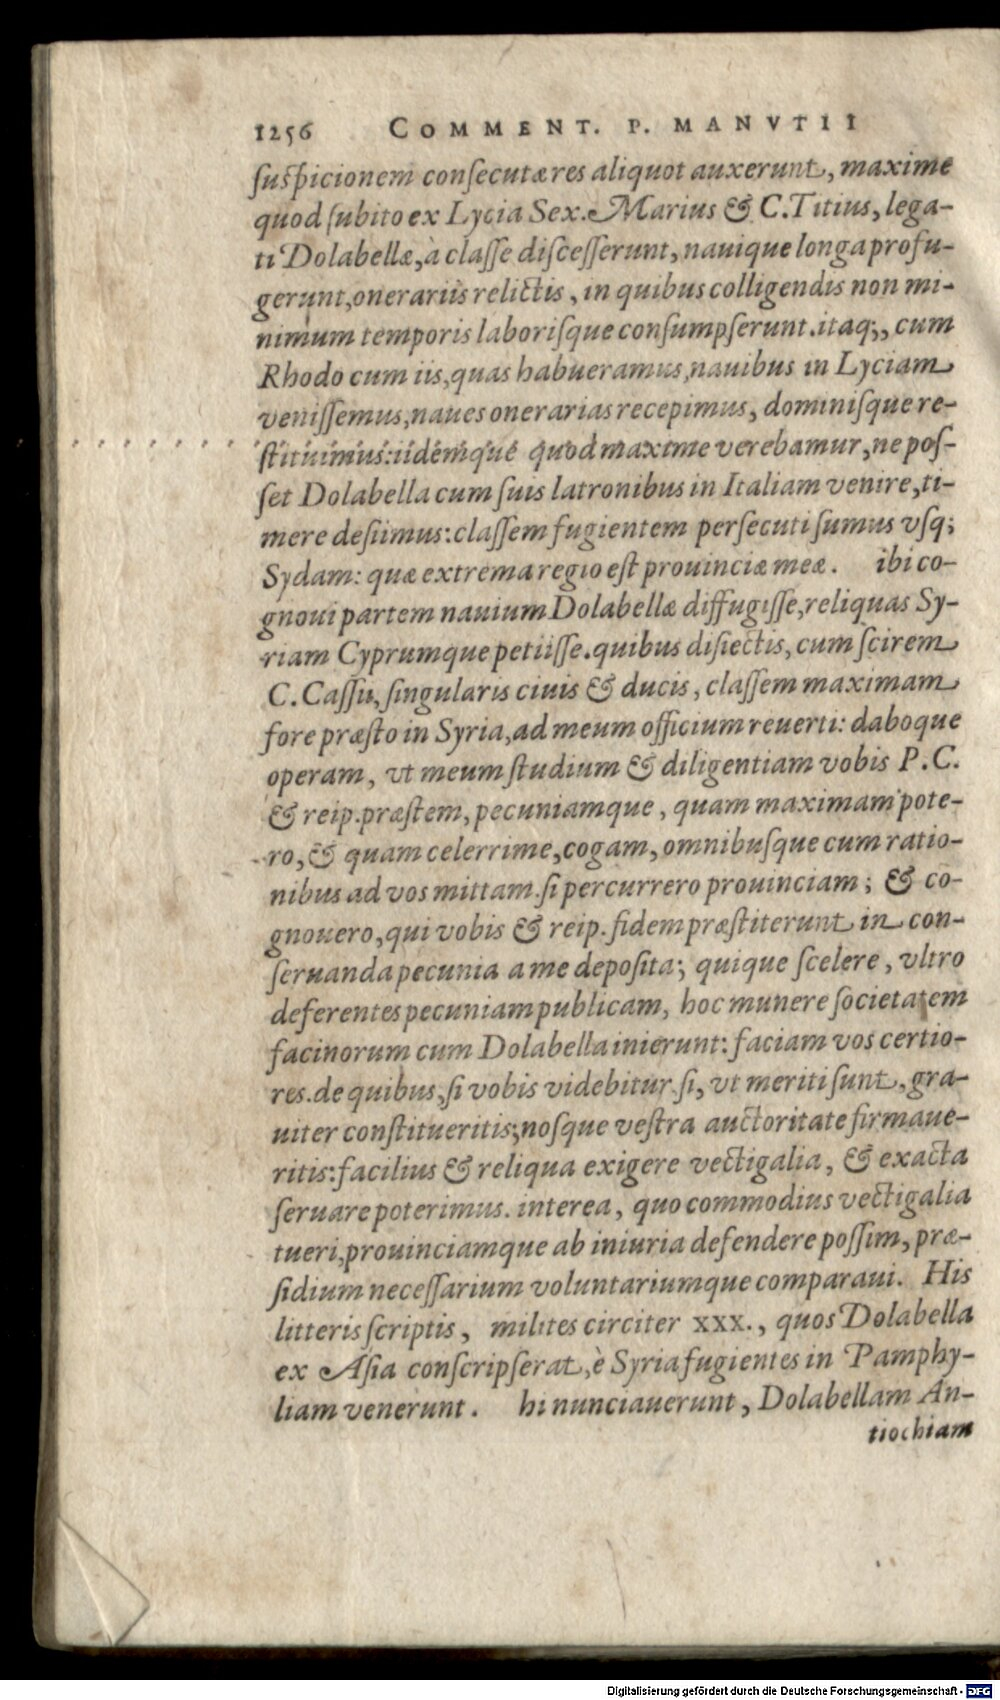 1256 COMMENT. P. MANVTII
ſuſpicionem conſecutæ res aliquot auxerunt, maxime
quod ſubito ex Lycia Sex. Marius & C. Titius, lega-
ti Dolabellæ, à claſſe diſceſſerunt, nauique longa profu-
gerunt, onerariis relictis, in quibus colligendis non mi-
nimum temporis laboriſque conſumpſerunt. itaq;, cum
Rhodo cum iis, quas habueramus, nauibus in Lyciam
veniſſemus, naues onerarias recepimus, dominiſque re-
ſtituimus: iidemque quod maxime verebamur, ne poſ-
ſet Dolabella cum ſuis latronibus in Italiam venire, ti-
mere deſiimus: claſſem fugientem perſecuti ſumus vſq;
Sydam: quæ extrema regio eſt prouinciæ meæ. ibi co-
gnoui partem nauium Dolabellæ diffugiſſe, reliquas Sy-
riam Cyprumque petiiſſe. quibus diſiectis, cum ſcirem
C. Caſſii, ſingularis ciuis & ducis, claſſem maximam
fore præſto in Syria, ad meum officium reuerti: daboque
operam, vt meum ſtudium & diligentiam vobis P. C.
& reip. præſtem, pecuniamque, quam maximam pote-
ro, & quam celerrime, cogam, omnibuſque cum ratio-
nibus ad vos mittam. ſi percurrero prouinciam; & co-
gnouero, qui vobis & reip. fidem præſtiterunt in con-
ſeruanda pecunia a me depoſita; quique ſcelere, vltro
deferentes pecuniam publicam, hoc munere ſocietatem
facinorum cum Dolabella inierunt: faciam vos certio-
res. de quibus, ſi vobis videbitur, ſi, vt meriti ſunt, gra-
uiter conſtitueritis; noſque veſtra auctoritate firmaue-
ritis: facilius & reliqua exigere vectigalia, & exacta
ſeruare poterimus. interea, quo commodius vectigalia
tueri, prouinciamque ab iniuria defendere poſſim, præ-
ſidium neceſſarium voluntariumque comparaui. His
litteris ſcriptis, milites circiter XXX., quos Dolabella
ex Aſia conſcripſerat, è Syria fugientes in Pamphy-
liam venerunt. hi nunciauerunt, Dolabellam An-
tiochiam
Digitalisierung gefördert durch die Deutsche Forschungsgemeinschaft - DFG